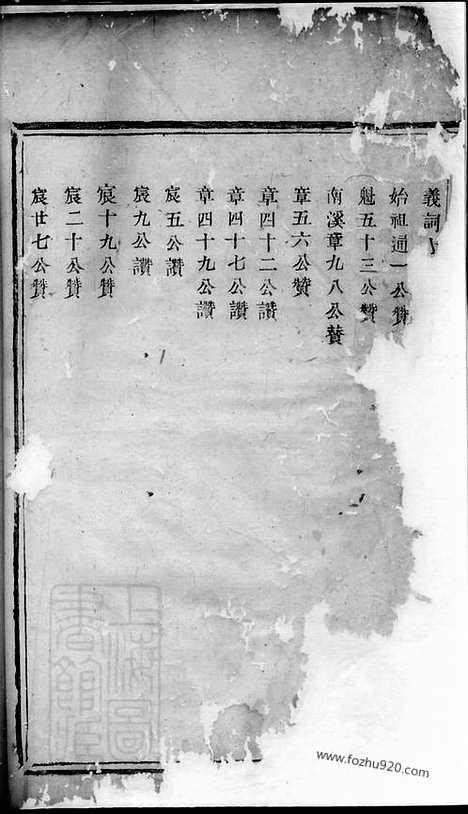 義祠
始祖通一公贊
魁五十三公贊
南溪章九八公贊
章五六公贊
章四十二公讚
章四十七公讚
章四十九公讚
宸五公讚
宸九公讚
宸十九公贊
宸二十公贊
宸廿七公贊
上海圖書館藏
www.fozhu920.com